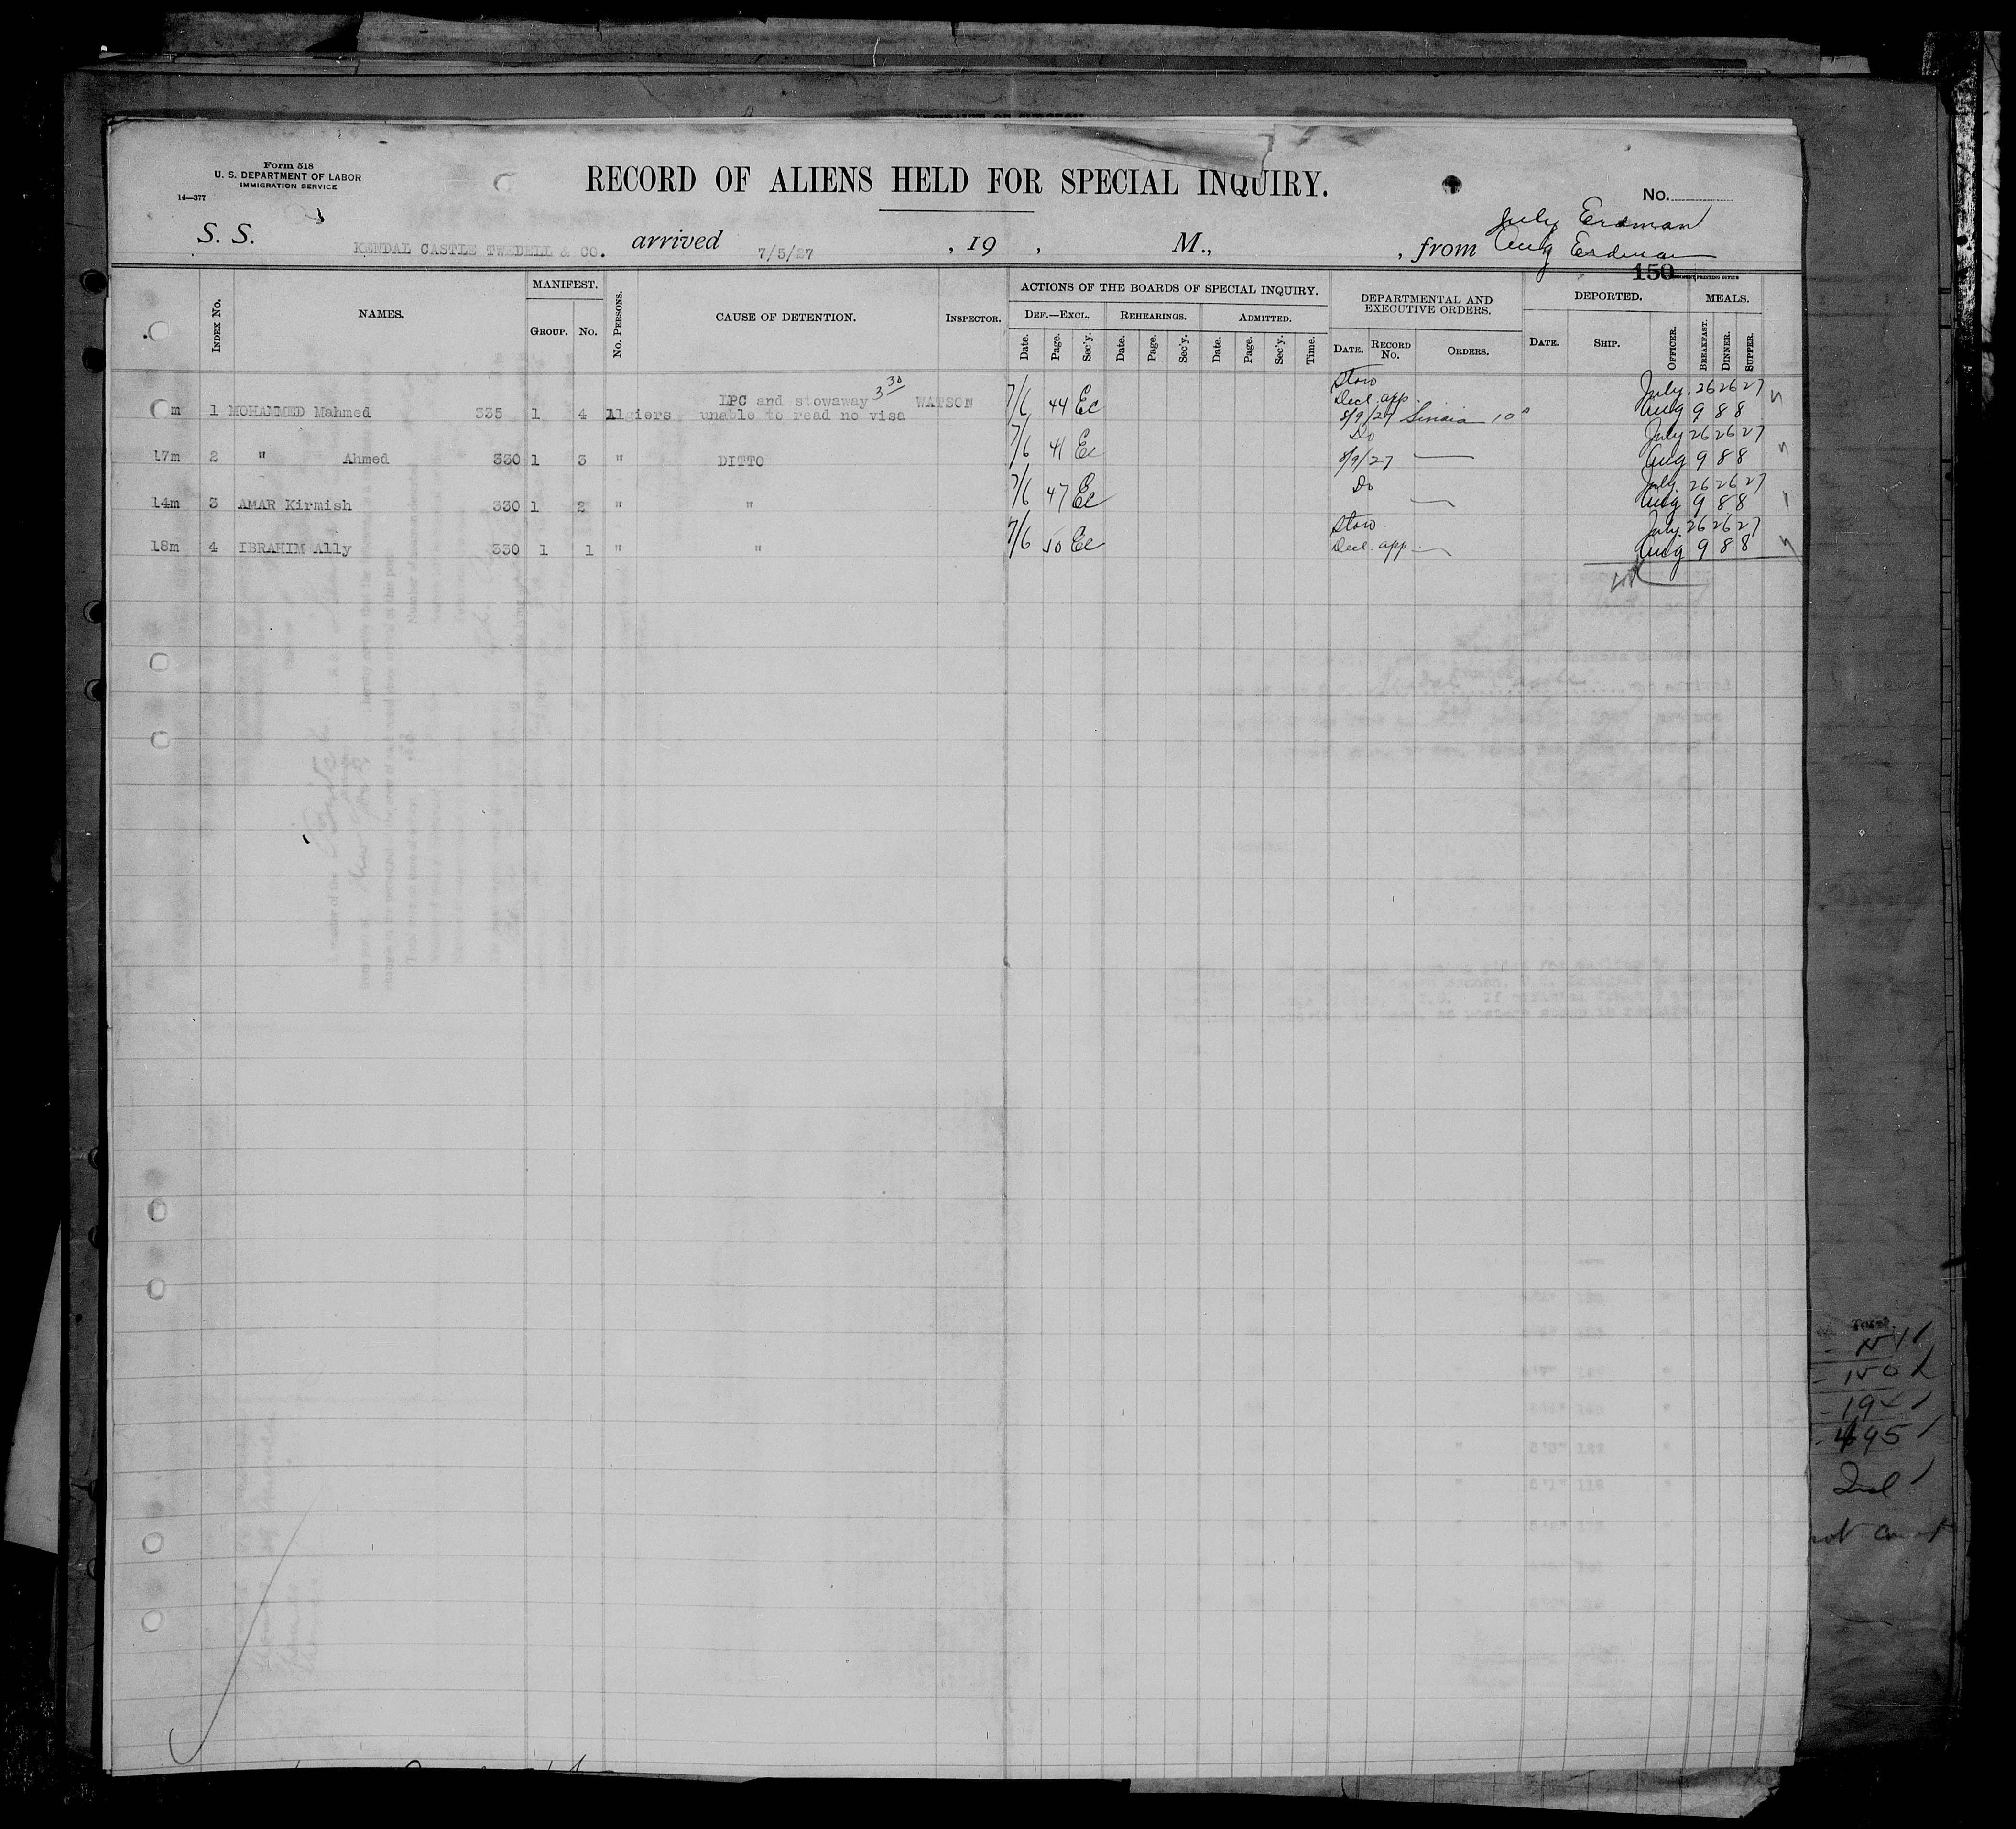 Form 518
U. S. DEPARTMENT OF LABOR
IMMIGRATION SERVICE
14—377
RECORD OF ALIENS HELD FOR SPECIAL INQUIRY.
No.
July Erdman
S. S. KENDAL CASTLE TWEDELL & CO. arrived 7/5/27, 19 , M., , from Aug Erdman
150
INDEX No. NAMES. MANIFEST. GROUP. No. No. PERSONS. CAUSE OF DETENTION. INSPECTOR.
ACTIONS OF THE BOARDS OF SPECIAL INQUIRY.
DEF.—EXCL. REHEARINGS. ADMITTED.
Date. Page. Sec'y. Date. Page. Sec'y. Date. Page. Sec'y. Time.
DEPARTMENTAL AND EXECUTIVE ORDERS.
DATE. RECORD No. ORDERS.
DEPORTED.
DATE. SHIP.
OFFICER.
MEALS.
BREAKFAST. DINNER. SUPPER.
LPC and stowaway 3 30 WATSON Stow July 26 26 27
m 1 MOHAMMED Mahmed 335 1 4 Algiers unable to read no visa 7/6 44 Ec Decl. app. Aug 9 8 8
8/9/27 Sinaia 10
17m 2 " Ahmed 330 1 3 " DITTO 7/6 41 Ec Do 8/9/27 July 26 26 27
Aug 9 8 8
14m 3 AMAR Kirmish 330 1 2 " " 7/6 47 Ec Do July 26 26 27
Aug 9 8 8
18m 4 IBRAHIM Ally 330 1 1 " " 7/6 50 Ec Stow July 26 26 27
Decl. app. Aug 9 8 8
195